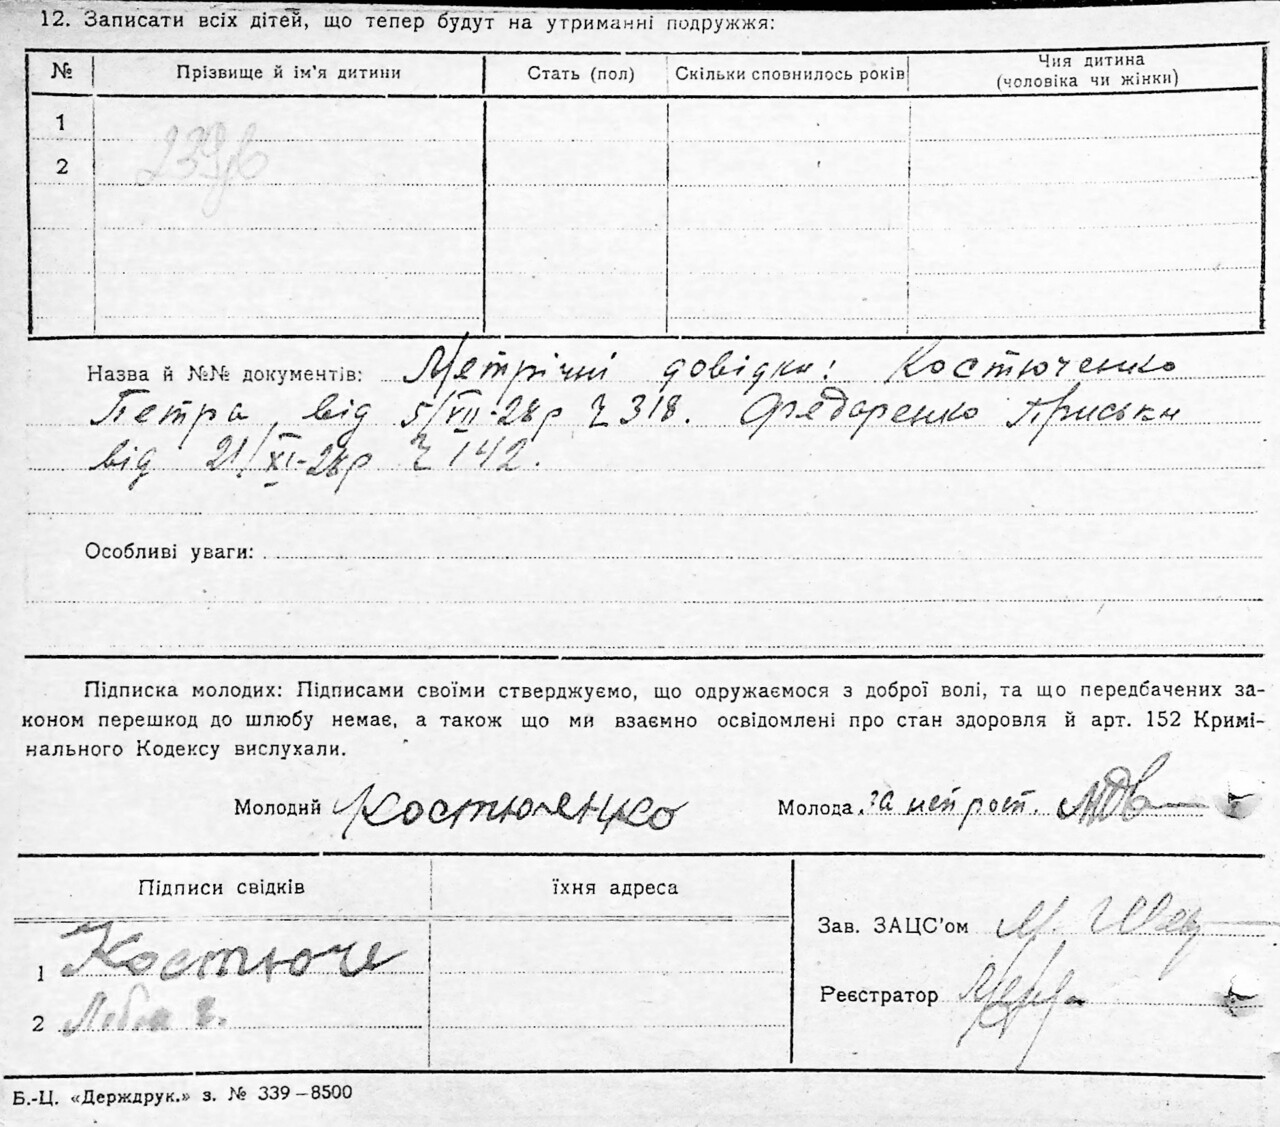 12. Записати всіх дітей, що тепер будут на утриманні подружжя:
№ Прізвище й ім'я дитини Стать (пол) Скільки сповнилось років Чия дитина (чоловіка чи жінки)
1
2
Назва й №№ документів: Метрічні довідки: Костюченко
Петра від 5/XII-28р № 318. ФядоренкоПриськи
від 21/XI-28р № 142.
Особливі уваги:
Підписка молодих: Підписами своїми стверджуємо, що одружаємося з доброї волі, та що передбачених за-
коном перешкод до шлюбу немає, а також що ми взаємно освідомлені про стан здоровля й арт. 152 Кримі-
нального Кодексу вислухали.
Молодий Костюянко Молода за
Підписи свідків їхня адреса
Зав. ЗАЦС'ом
1 Костюче
Реєстратор
2
Б.-Ц. «Держдрук.» з. № 339–8500